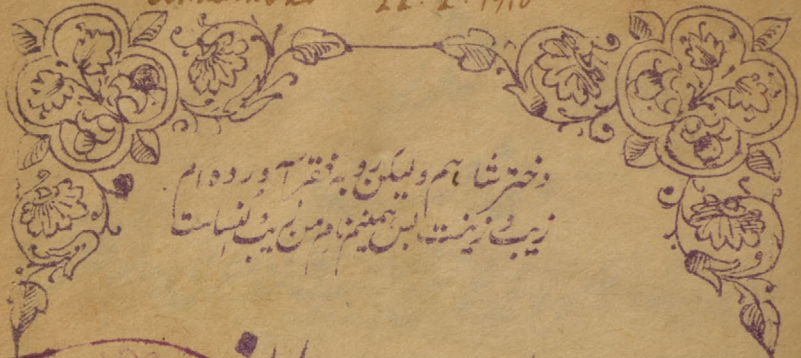 22. 2. 1910
دختر شاهم ولیکن رو به فقر آورده ام
زیب و زینت بس همینم نام من زیب النساست